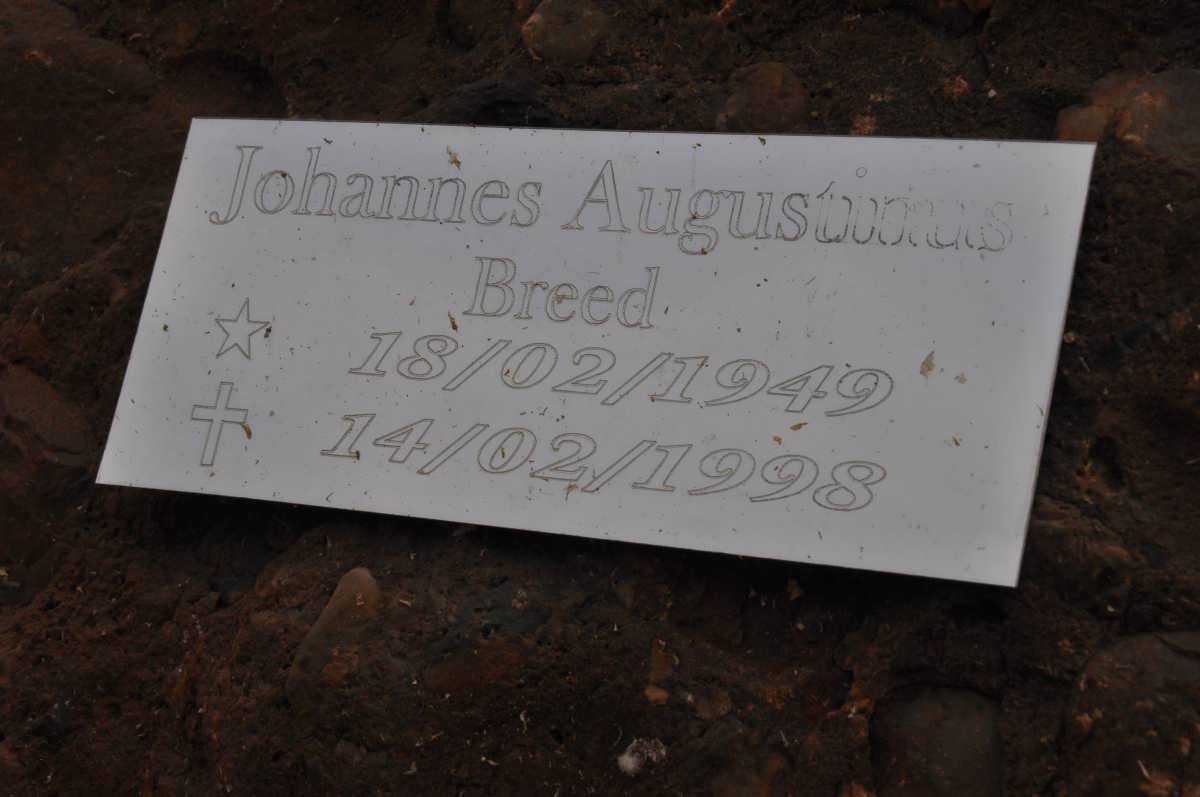 Johannes Augustinus
Breed
18/02/1949
14/02/1998